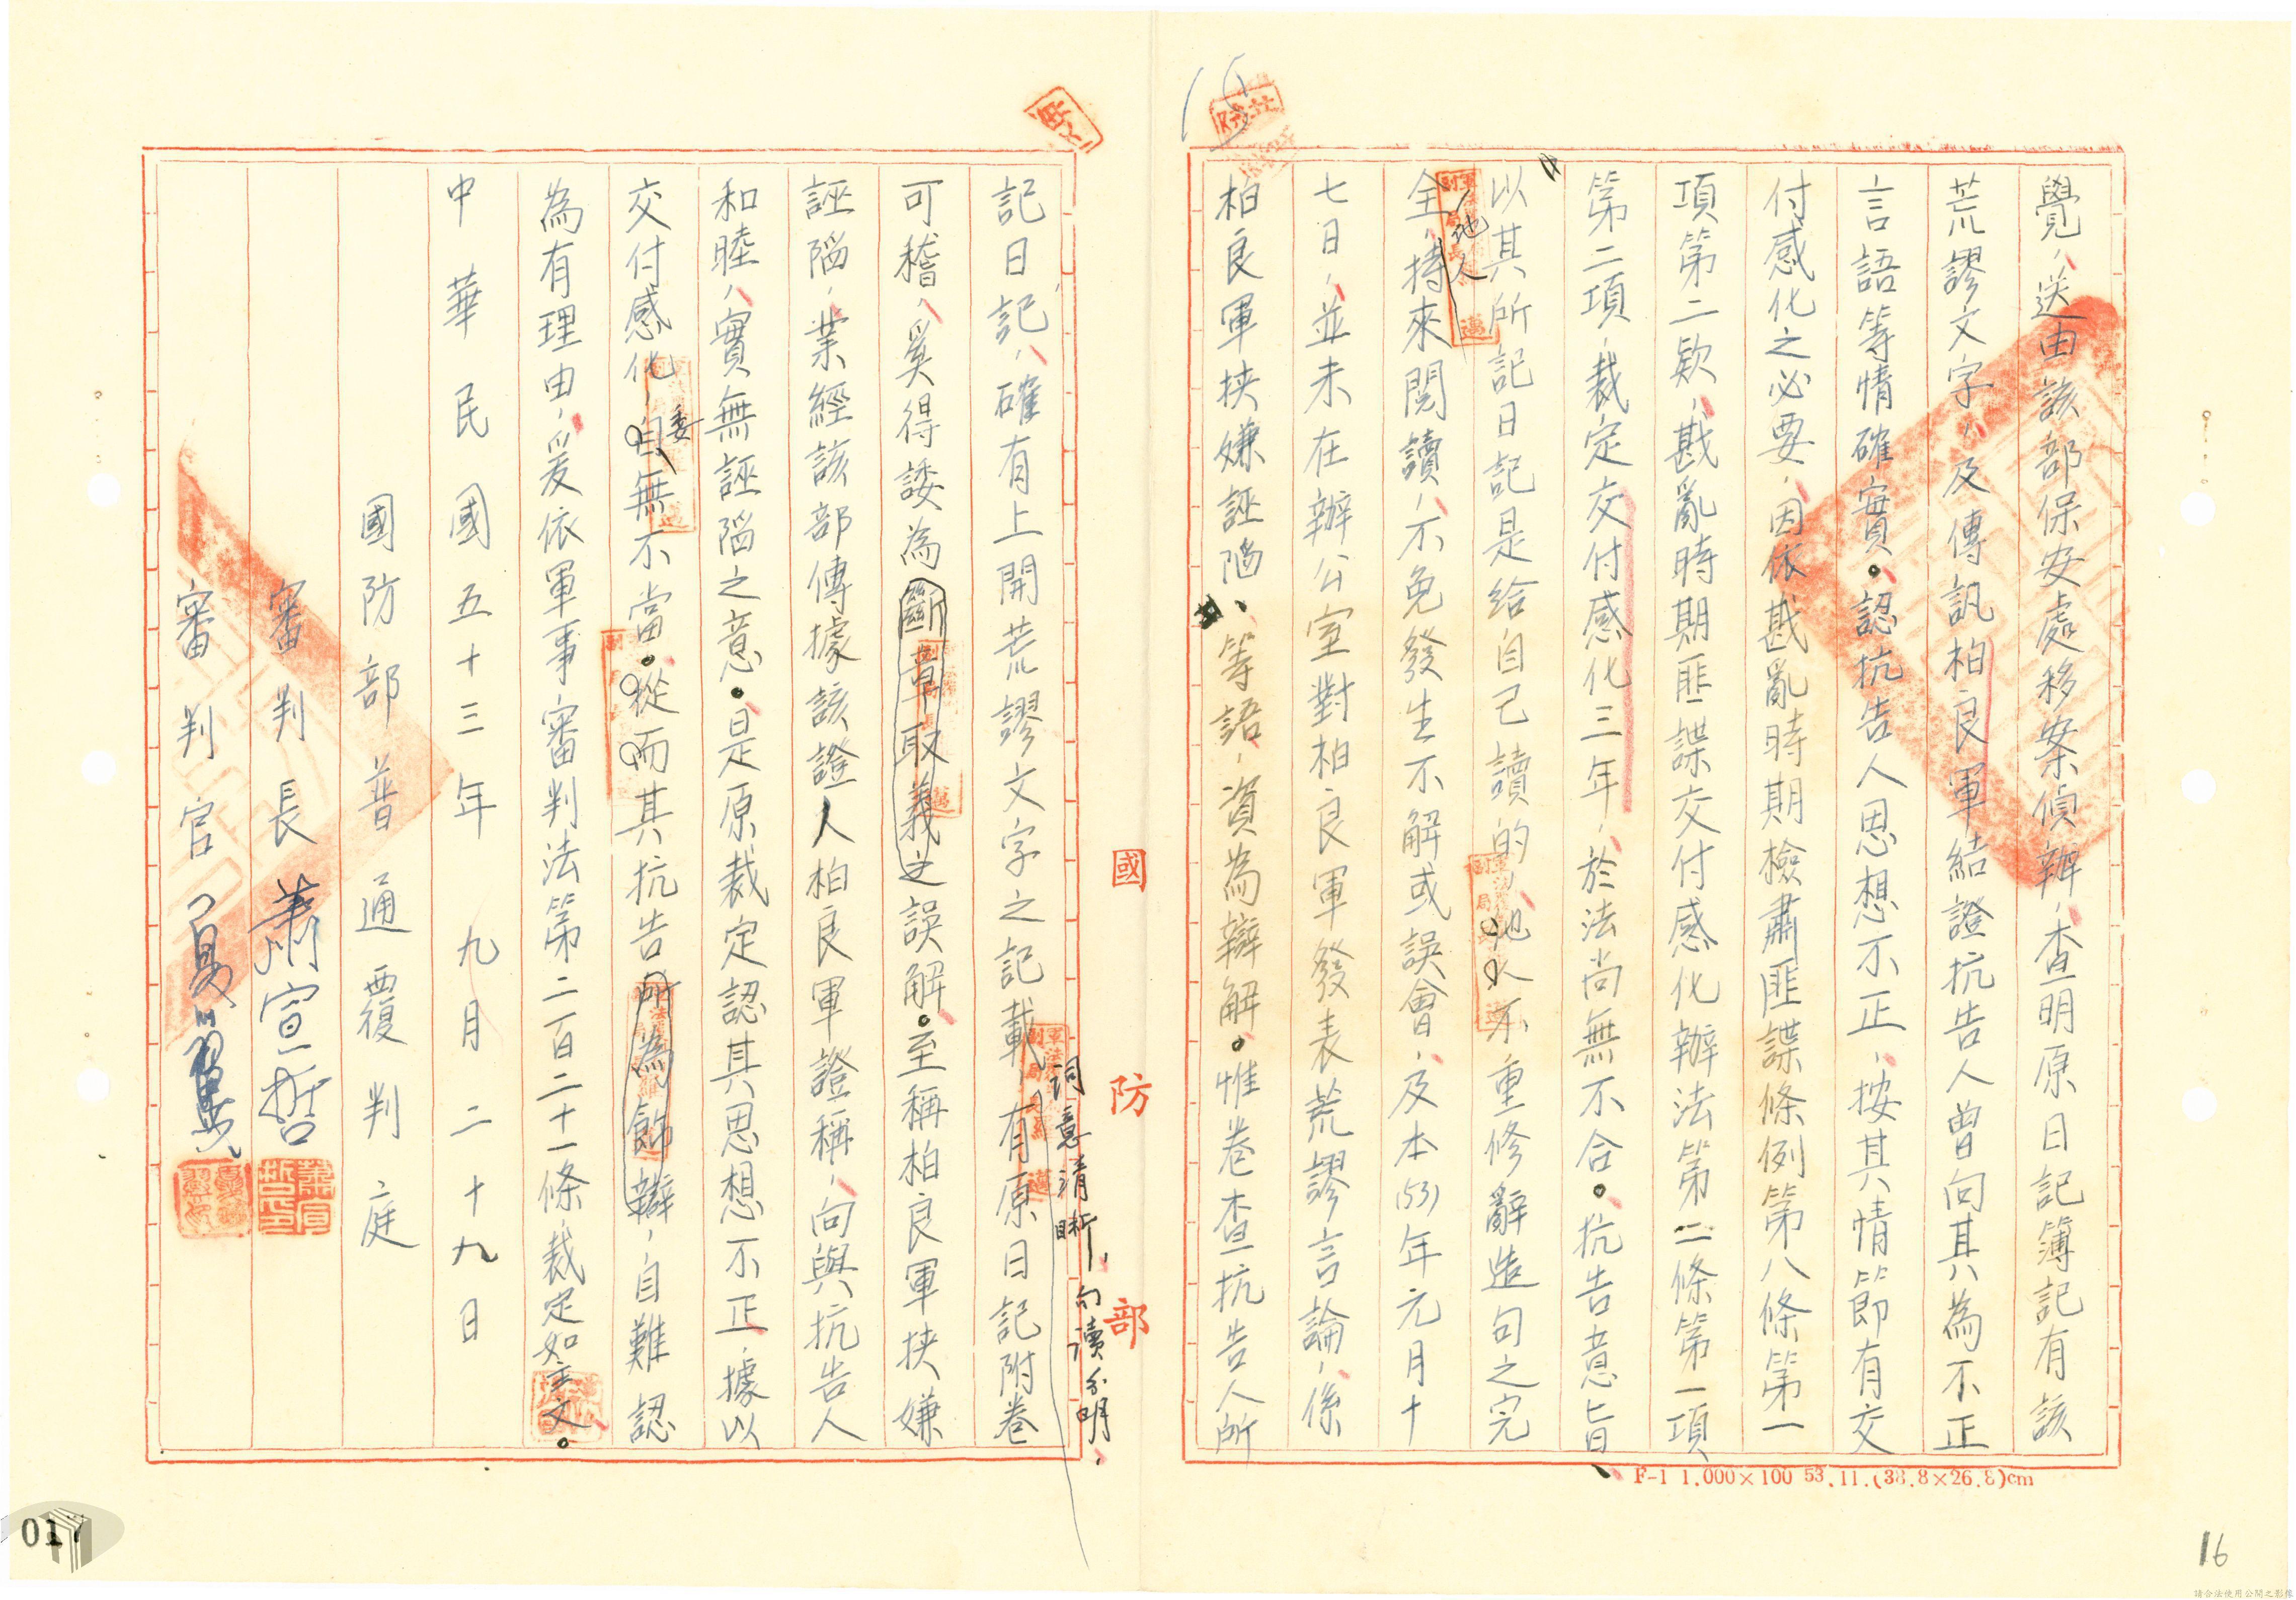 覺，送由該部保安處移案偵辦，查明原日記簿記有該
荒謬文字，及傳訊柏良軍結證抗告人曾向其為不正
言語等情確實。認抗告人思想不正，按其情節有交
付感化之必要，因依戡亂時期檢肅匪諜條例第八條第一
項第二款，戡亂時期匪諜交付感化辦法第二條第一項
第二項，裁定交付感化三年，於法尚無不合。抗告意旨
以其所記日記是给自己讀的，他人不重修辭造句之完
全，
他人
摶來閱讀，不免發生不解或誤會，及本(53)年元月十
七日，並未在辦公室對柏良軍發表荒謬言論，係
柏良軍挾嫌誣陷，等語，資為辯解。惟卷查抗告人所
國防部
記日記，確有上開荒謬文字之記載，有原日記附卷
詞意清晰，句讀分明，
可稽，奚得諉為斷章取義之誤解。至稱柏良軍挾嫌
誣陷，業經該部傳據該證人柏良軍證稱，向與抗告人
和睦，實無誣陷之意。是原裁定認其思想不正，據以
交付感化，自無不當。從而其抗告所為飾辯，自難認
委
為有理由，爰依軍事審判法第二百二十一條，裁定如主文。
中華民國五十三年九月二十九日
國防部普通覆判庭
審判長 蕭宣哲
審判官
F-1 1,000×100 53.11.(38.8×26.8)cm
017
16
請合法使用公開之影像